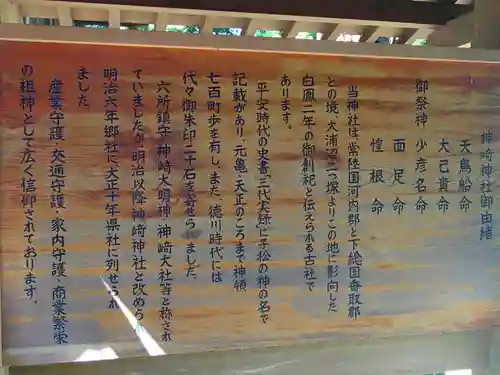 神崎神社御由緒
天鳥船命
大己貴命
御祭神 少彦名命
面足命
惶根命
当神社は、常陸国河内郡と下総国香取郡
との境、大浦沼二つ塚よりこの地に影向した
白鳳二年の御創祀と伝えられる古社で
あります。
平安時代の史書「三代実録」に子松の神の名で
記載があり、元亀・天正のころまで神領
七百町歩を有し、また、徳川時代には
代々御朱印二十石を寄せられました。
六所鎮守神崎大明神、神崎大社等と称され
ていましたが、明治以降神崎神社と改められ
明治六年郷社に、大正十年県社に列せられ
ました。
産業守護・交通守護・家内守護・商業繁栄
の祖神として広く信仰されております。